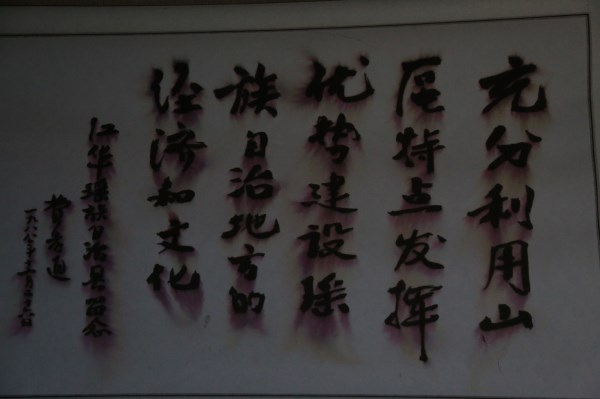 充分利用山
区特点发挥
优势建设瑶
族自治地方的
经济和文化
江华瑶族自治县留念
费孝通
一九八八年